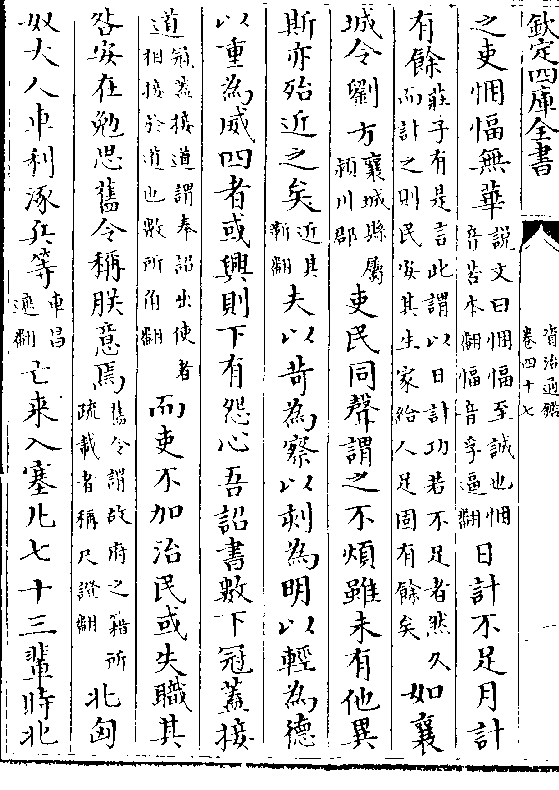 欽定四庫全書
資治通鑑
卷四十七
之吏悃愊無華說文曰悃愊至誠也悃音苦本翻愊音孚逼翻日計不足月計
有餘莊子有是言此謂以日計功若不足者然久而計之則民安其生家給人足固有餘矣如襄
城令劉方襄城縣屬潁川郡吏民同聲謂之不煩雖未有他異
斯亦殆近之矣近其靳翻夫以苛為察以刻為明以輕為德
以重為威四者或興則下有怨心吾詔書數下冠蓋接
道冠蓋接道謂奉詔出使者相接於道也數所角翻而吏不加治民或失職其
咎安在勉思舊令稱朕意焉舊令謂故府之籍所疏載者稱尺證翻北匈
奴大人車利涿兵等車昌遮翻亡來入塞凡七十三輩時北